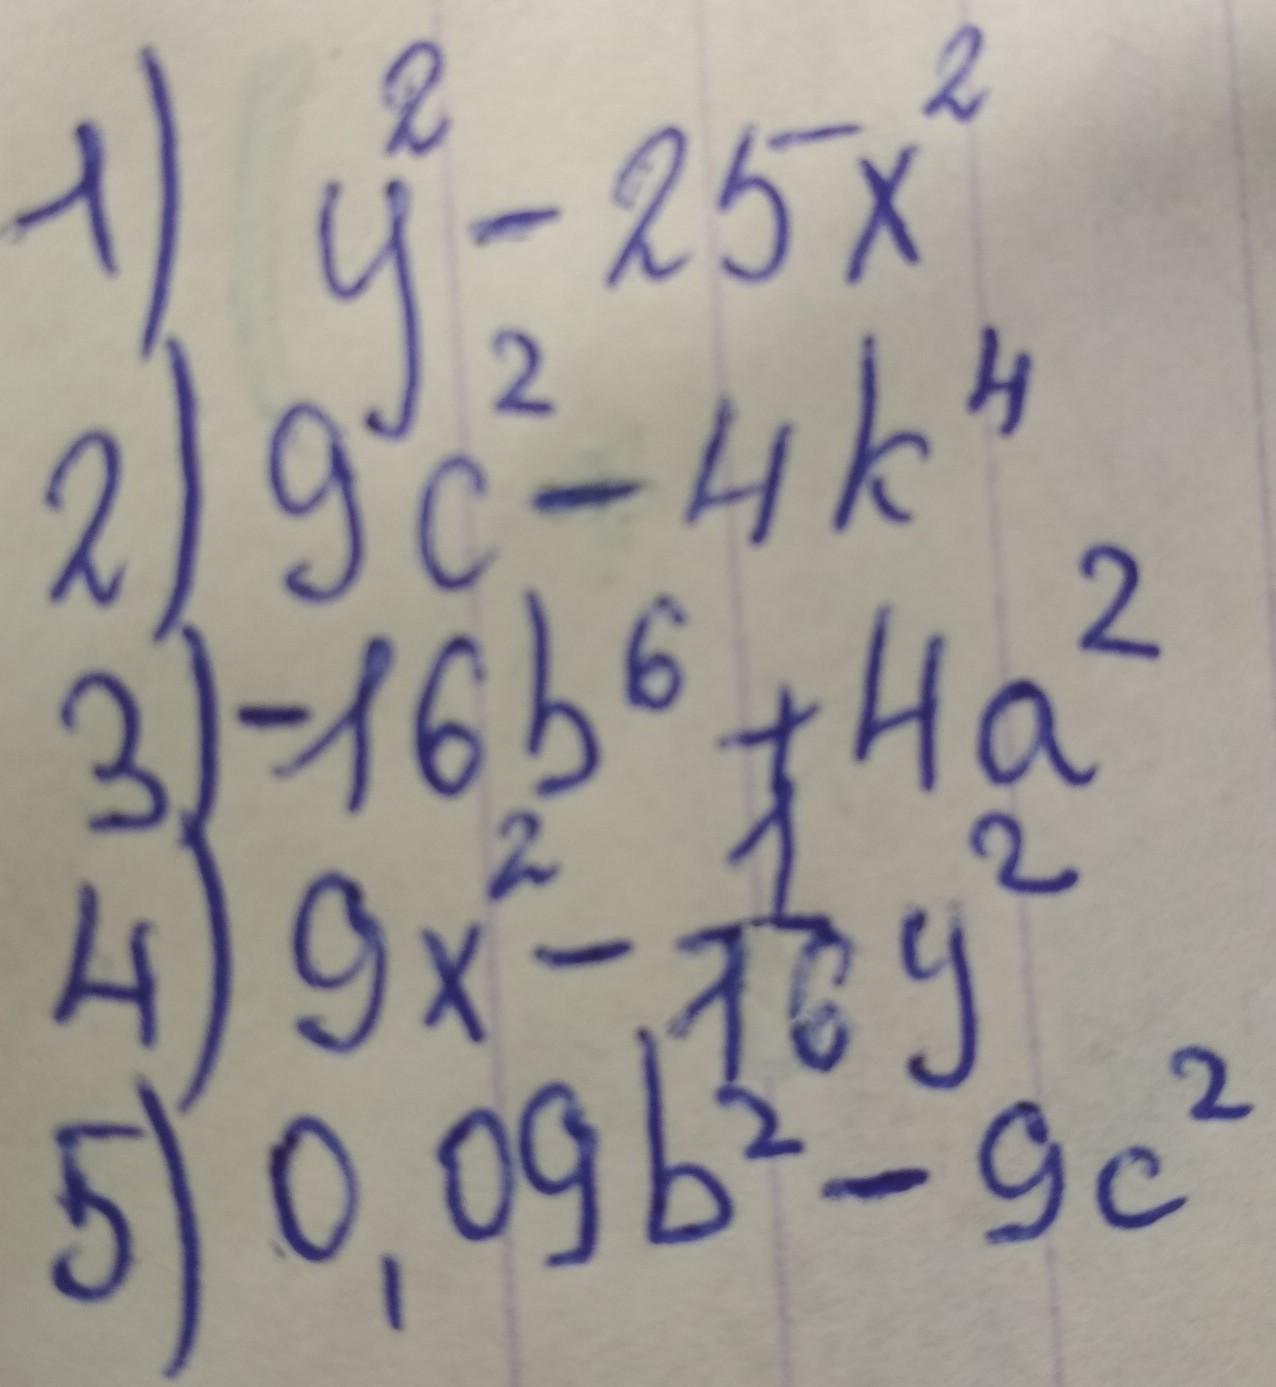 1) y² - 25x²
2) 9c² - 4k⁴
3) -16b⁶ + 4a²
4) 9x² - 1/16 y²
5) 0,09b² - 9c²